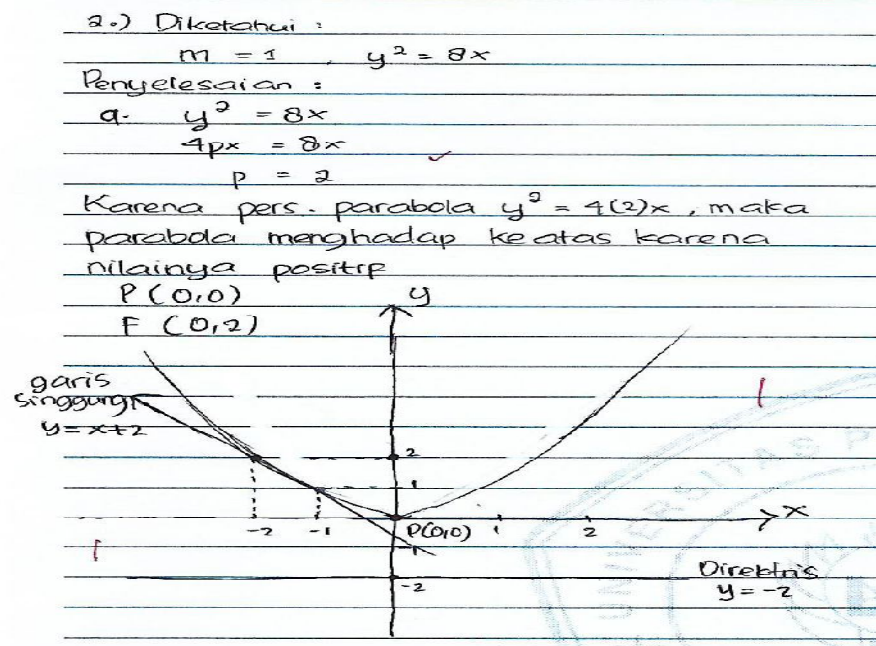 2.) Diketahui :
m = 1 , y² = 8x
Penyelesaian :
a. y² = 8x
4px = 8x
p = 2
Karena pers. parabola y² = 4(2)x, maka
parabola menghadap ke atas karena
nilainya positif
P (0,0)
F (0,2)
y
garis
singgung
y = x+2
2
1
-2 -1 P(0,0) 1 2 x
-1
-2
Direktris
y = -2
UNIVERSITAS P